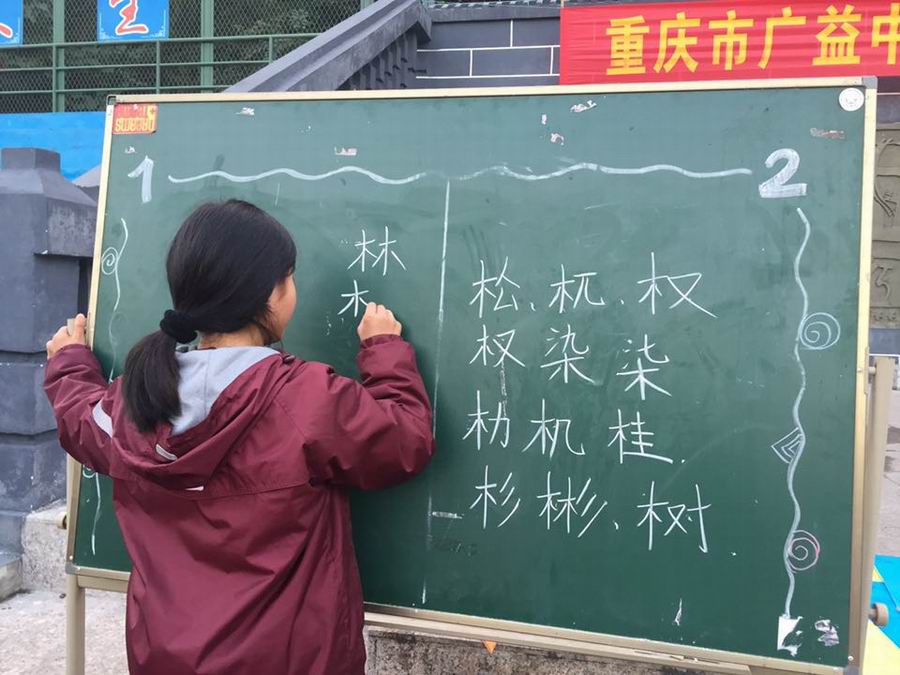 重庆市广益中
1
2
林
木
松、杌、权
杈 染 柒
朸 机 桂.
杉 彬、树.